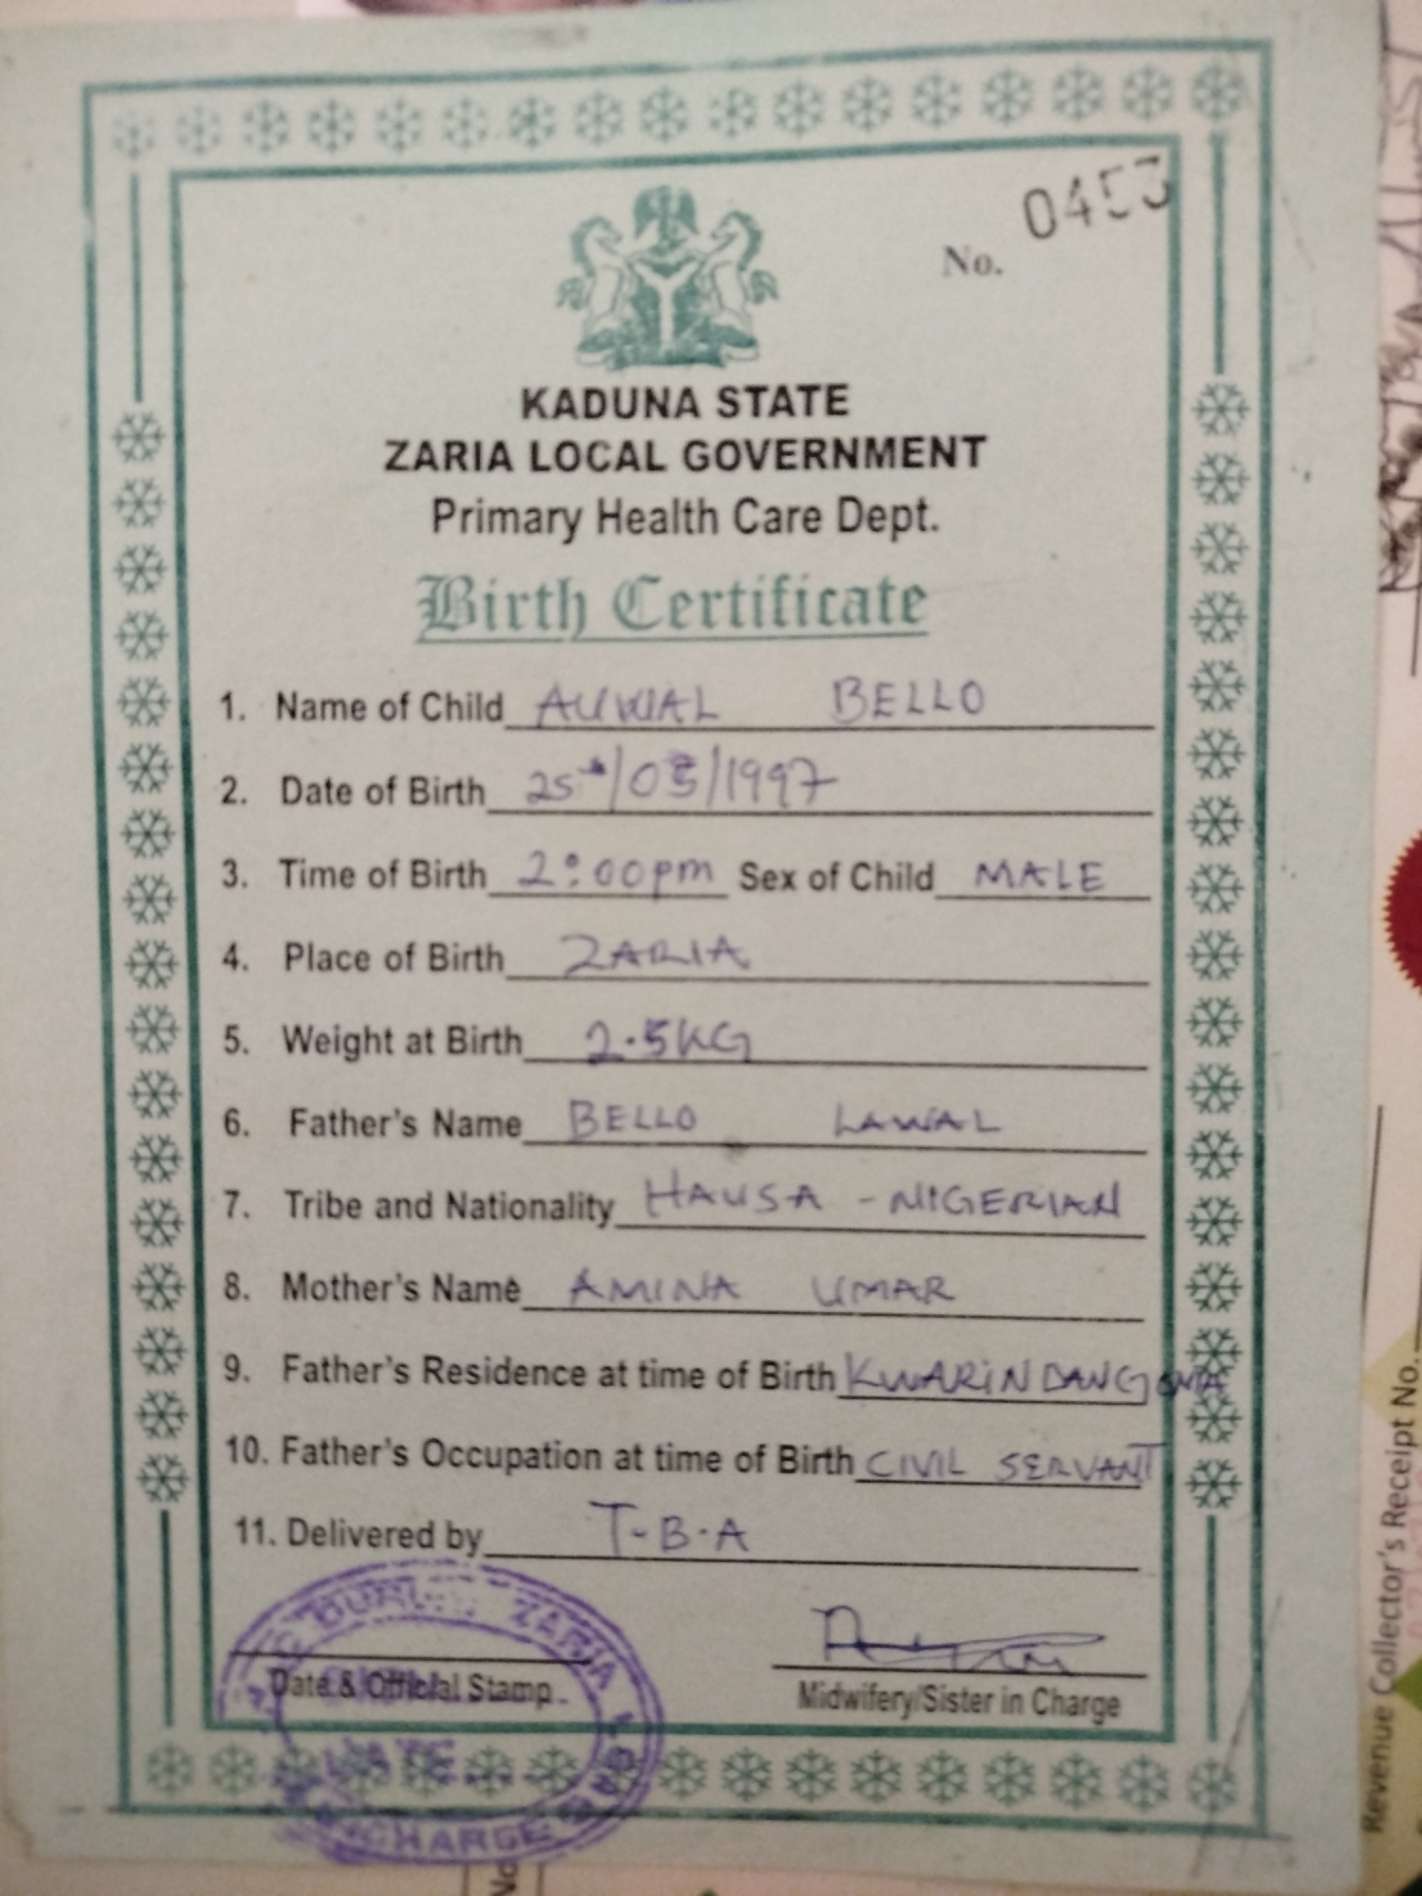 No. 0453
KADUNA STATE
ZARIA LOCAL GOVERNMENT
Primary Health Care Dept.
Birth Certificate
1. Name of Child AUWAL BELLO
2. Date of Birth 25th/03/1997
3. Time of Birth 2:00pm Sex of Child MALE
4. Place of Birth ZARIA
5. Weight at Birth 2.5KG
6. Father's Name BELLO LAWAL
7. Tribe and Nationality HAUSA - NIGERIAN
8. Mother's Name AMINA UMAR
9. Father's Residence at time of Birth KWARIN DANGOMA
10. Father's Occupation at time of Birth CIVIL SERVANT
11. Delivered by T-B-A
ZARIA
Date & Official Stamp
Midwifery/Sister in Charge
CHARGE
Revenue Collector's Receipt No.
No